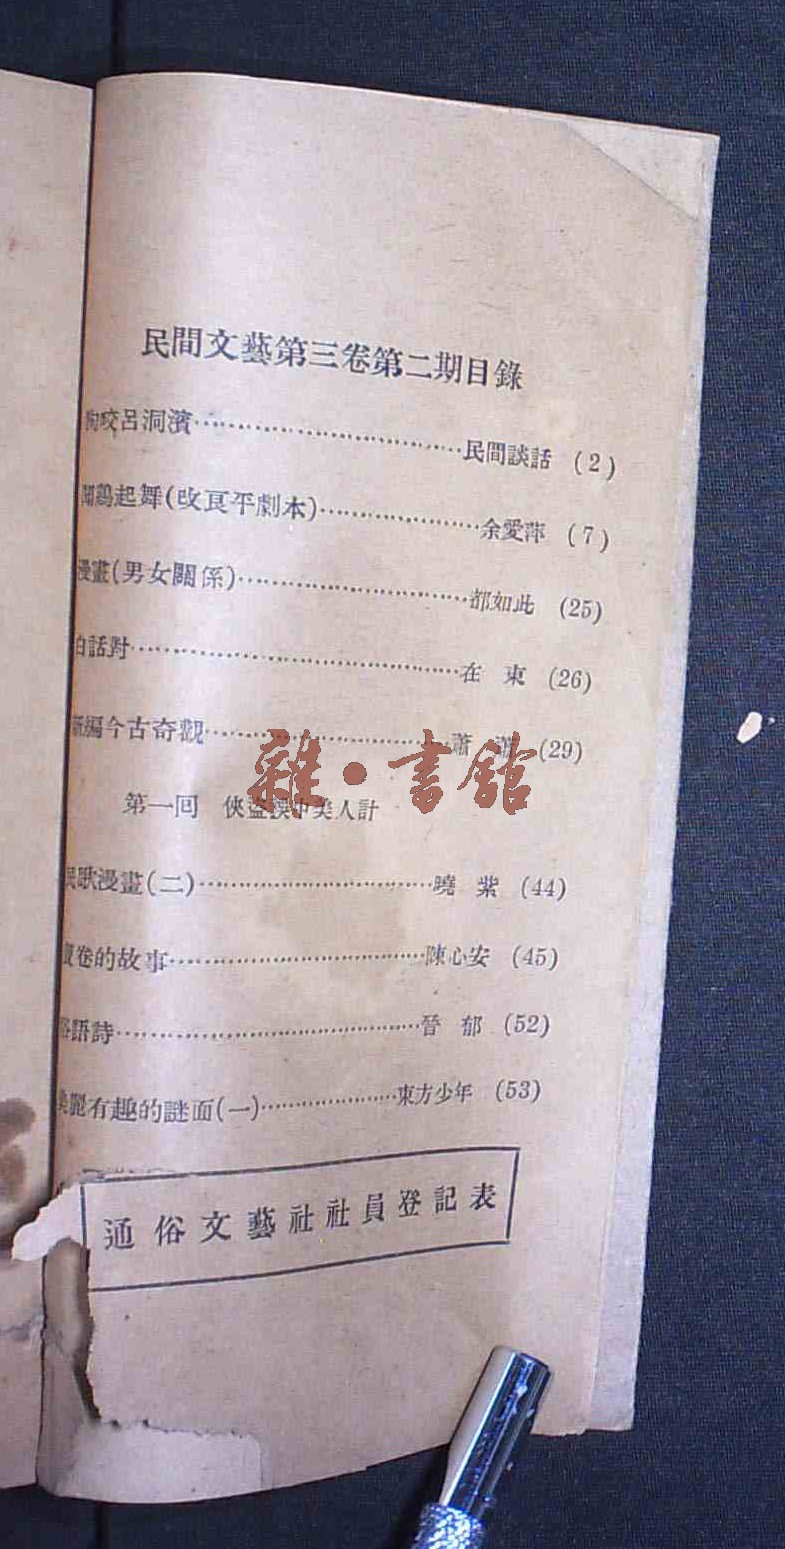 民間文藝第三卷第二期目錄
狗咬呂洞濱……民間談話 (2)
聞鷄起舞(改良平劇本)……余愛萍 (7)
漫畫(男女關係)……都如此 (25)
白話對……在 東 (26)
新編今古奇觀……蕭 (29)
第一回 俠盜誤中美人計
民歌漫畫(二)……曉 紫 (44)
寶卷的故事……陳心安 (45)
俗語詩……晉 郁 (52)
美麗有趣的謎面(一)……東方少年 (53)
通俗文藝社社員登記表
雜·書館